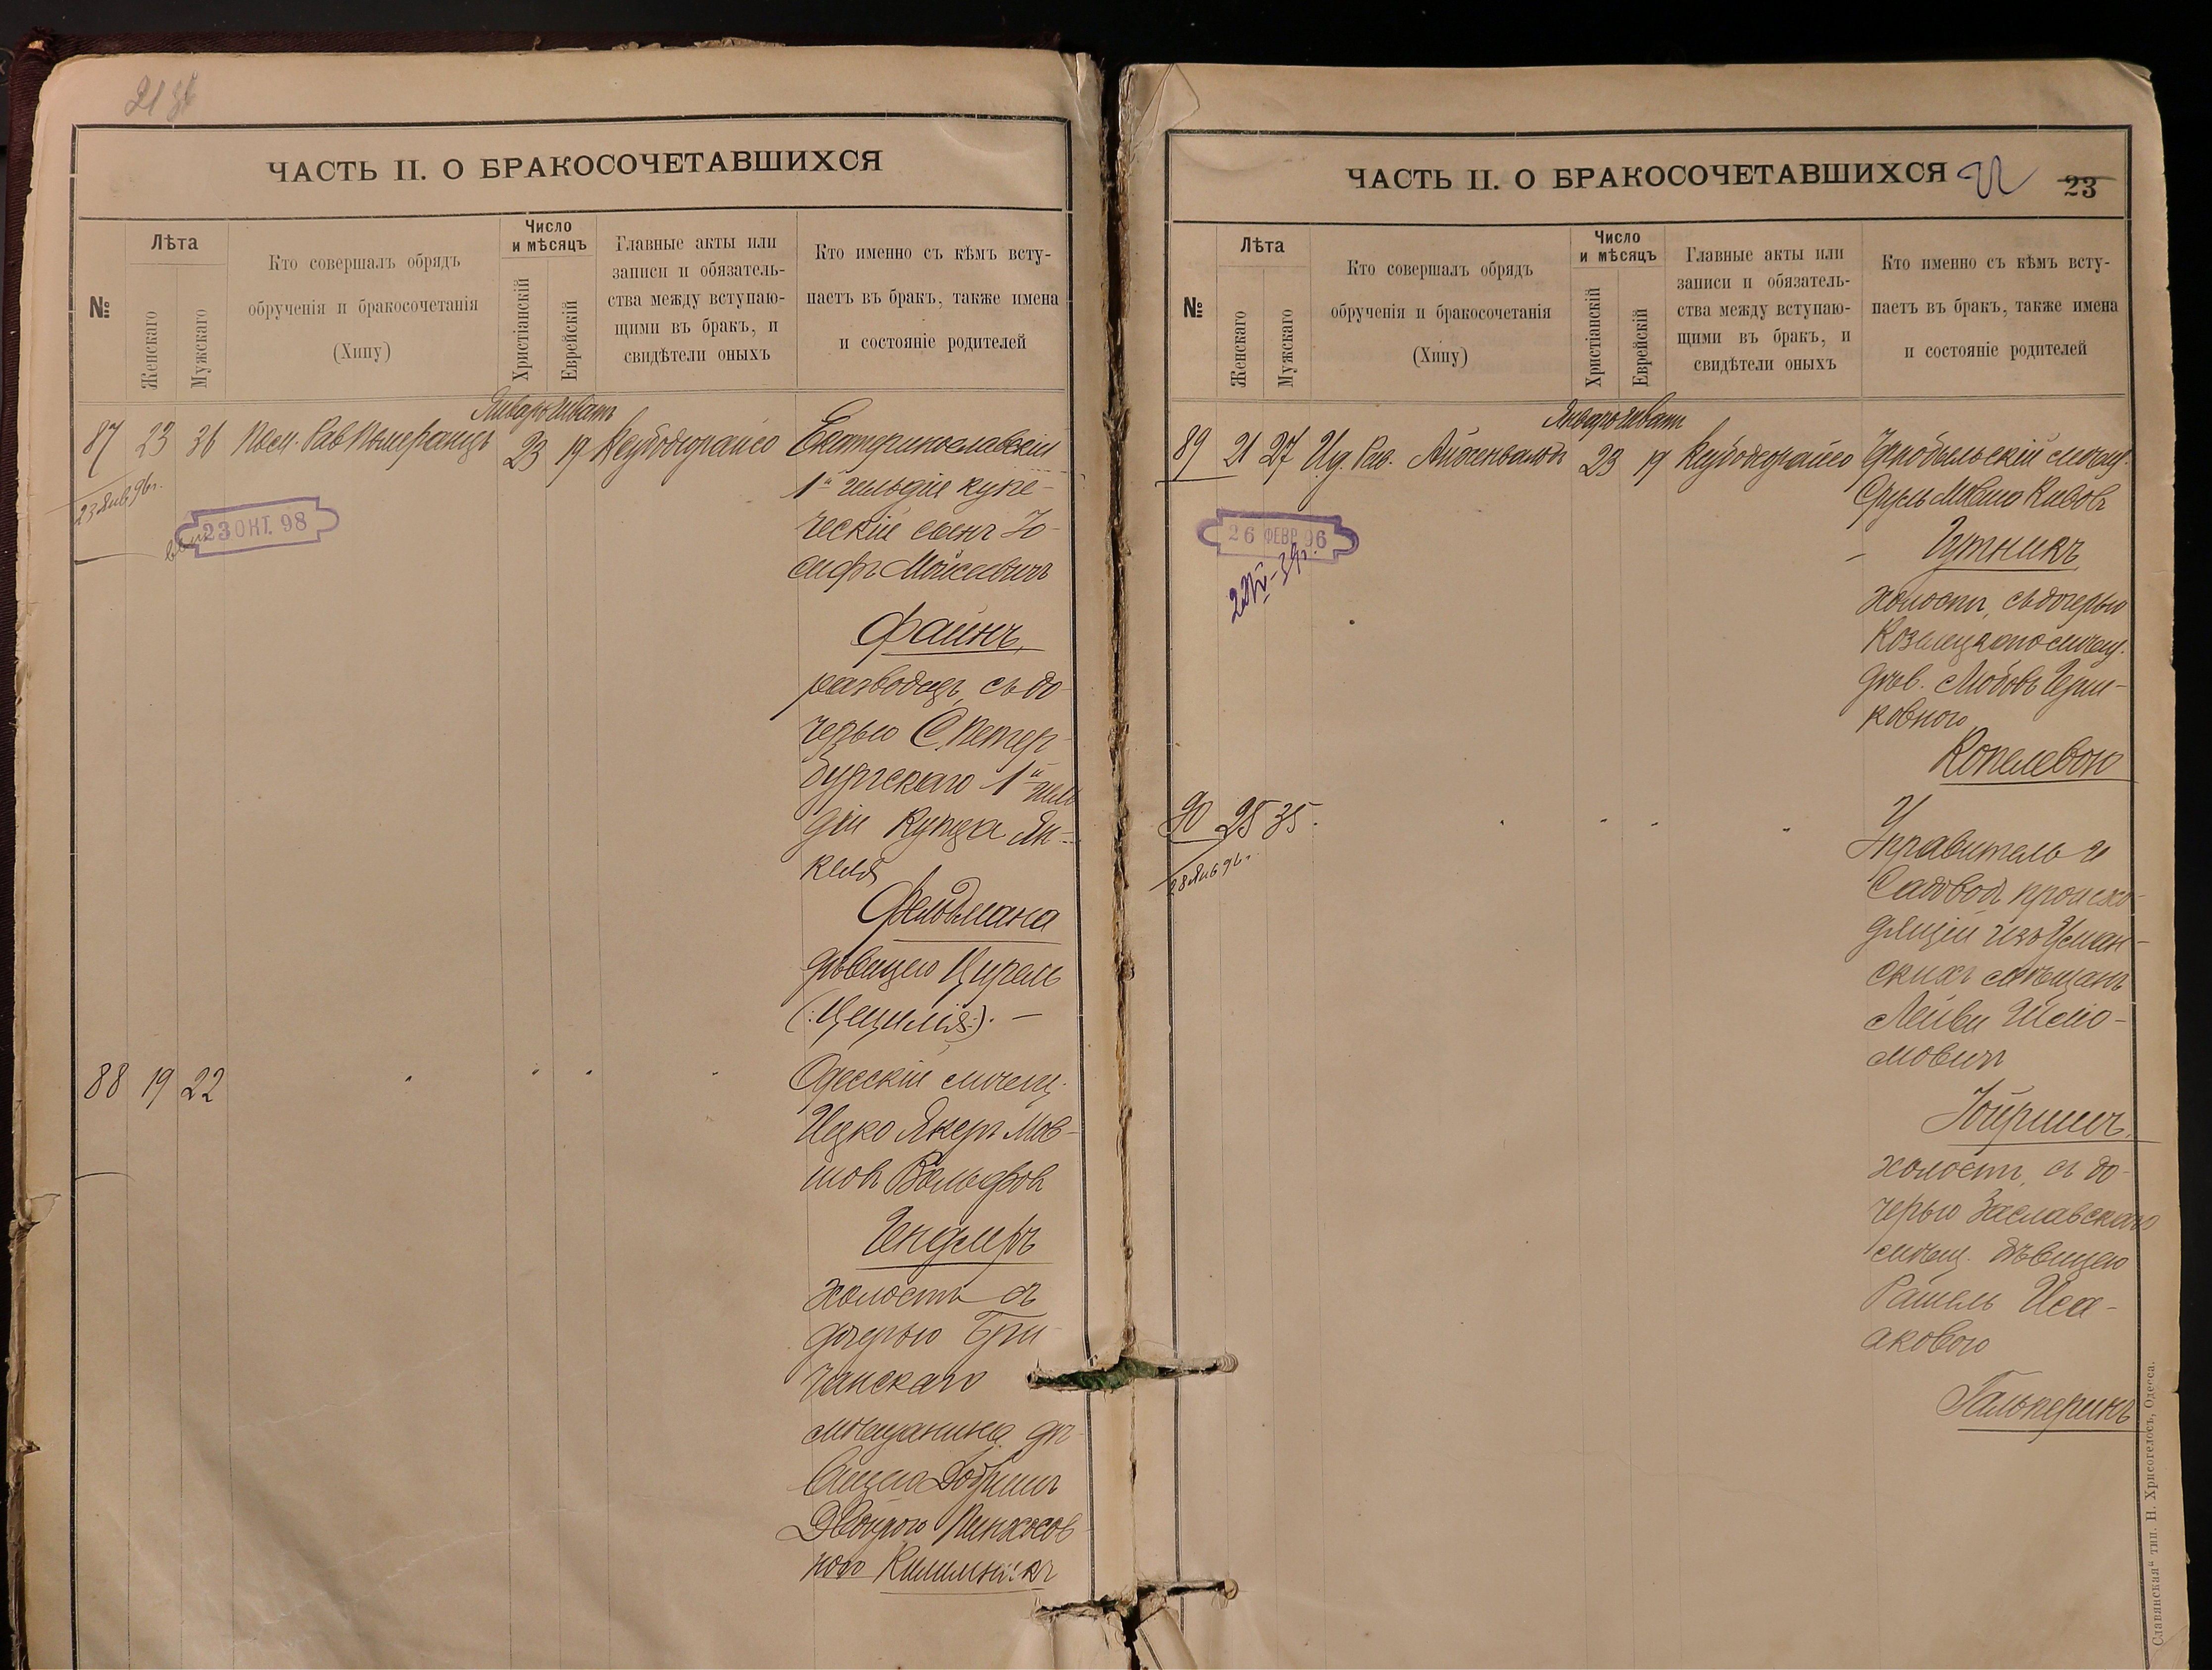 ЧАСТЬ II. О БРАКОСОЧЕТАВШИХСЯ
№
Лѣта
Женскаго
Мужскаго
Кто совершалъ обрядъ
обрученія и бракосочетанія
(Хипу)
Число
и мѣсяцъ
Христіанскій
Еврейскій
Главные акты или
записи и обязатель-
ства между вступаю-
щими въ бракъ, и
свидѣтели оныхъ
Кто именно съ кѣмъ всту-
паетъ въ бракъ, также имена
и состояніе родителей
Январь Шватъ
87 23 36 23 19 Кнубодерайсо Екатеринославскій
23 Янв 96г.
23 ОКТ. 98
1й гильдіи купе-
ческій сынъ Іо-
сифъ Мойсеевичъ
Файнъ,
разводецъ, съ до-
черью С. Петер-
бургскаго 1й гил
діи купца Ян-
келя
Фельдмана
дѣвицею Цирель
(:Цецилія:). —
88 19 22 Одесскій мѣщ.
Ицко Янкель Мов-
шовъ Вольфовъ
Гендлеръ
холостъ съ
дочерью Бри-
чанскаго
мѣщанина дѣ-
вицею
Двойрою Пинхосов-
ною
ЧАСТЬ II. О БРАКОСОЧЕТАВШИХСЯ 22 23
№
Лѣта
Женскаго
Мужскаго
Кто совершалъ обрядъ
обрученія и бракосочетанія
(Хипу)
Число
и мѣсяцъ
Христіанскій
Еврейскій
Главные акты или
записи и обязатель-
ства между вступаю-
щими въ бракъ, и
свидѣтели оныхъ
Кто именно съ кѣмъ всту-
паетъ въ бракъ, также имена
и состояніе родителей
Январь Шватъ
89 21 27 Рав. Айзенвальдъ 23 19 Кнубодерайсо Чернобыльскій мѣщ.
26 ФЕВР 96
Сруль Мовша
Гутникъ
холостъ, съ дочерью
Козелецкаго мѣщ.
дѣв. Любовь Герш-
ковною
Копелевою
90 25 35
28 Янв 96г.
Управитель и
Садоводъ происхо-
дящій изъ Уман-
скихъ мѣщанъ
Лейви Шліо-
мовичъ
Юйришъ,
холостъ, съ до-
черью Заславскаго
мѣщ. дѣвицею
Рашель Иса-
аковою
Гальперинъ
„Славянская“ тип. Н. Хрисогелосъ, Одесса.